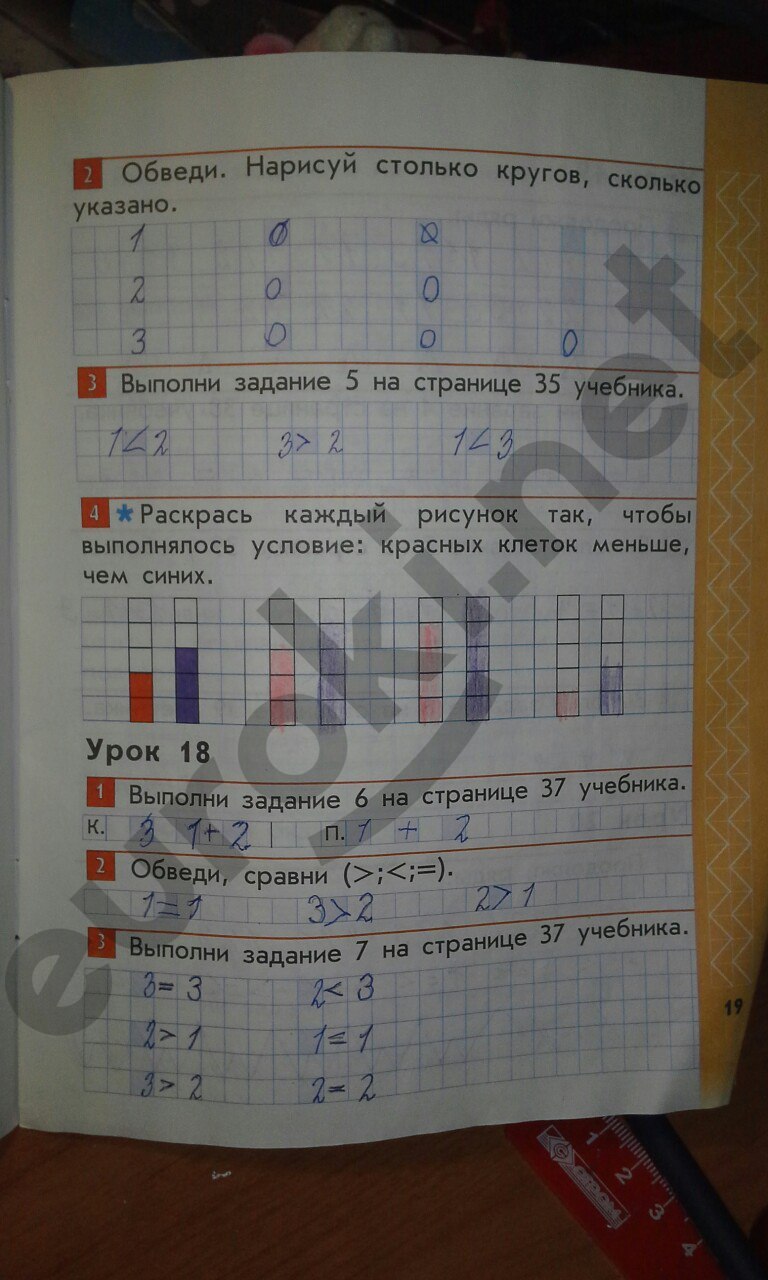 2 Обведи. Нарисуй столько кругов, сколько
указано.
1 0 0
2 0 0
3 0 0 0
3 Выполни задание 5 на странице 35 учебника.
1<2 3>2 1<3
4 * Раскрась каждый рисунок так, чтобы
выполнялось условие: красных клеток меньше,
чем синих.
Урок 18
1 Выполни задание 6 на странице 37 учебника.
К. 3 1+2 П. 1 + 2
2 Обведи, сравни (>;<;=).
1=1 3>2 2>1
3 Выполни задание 7 на странице 37 учебника.
3=3 2<3
2>1 1=1
3>2 2=2
19
1 2 3 4
euroki.net